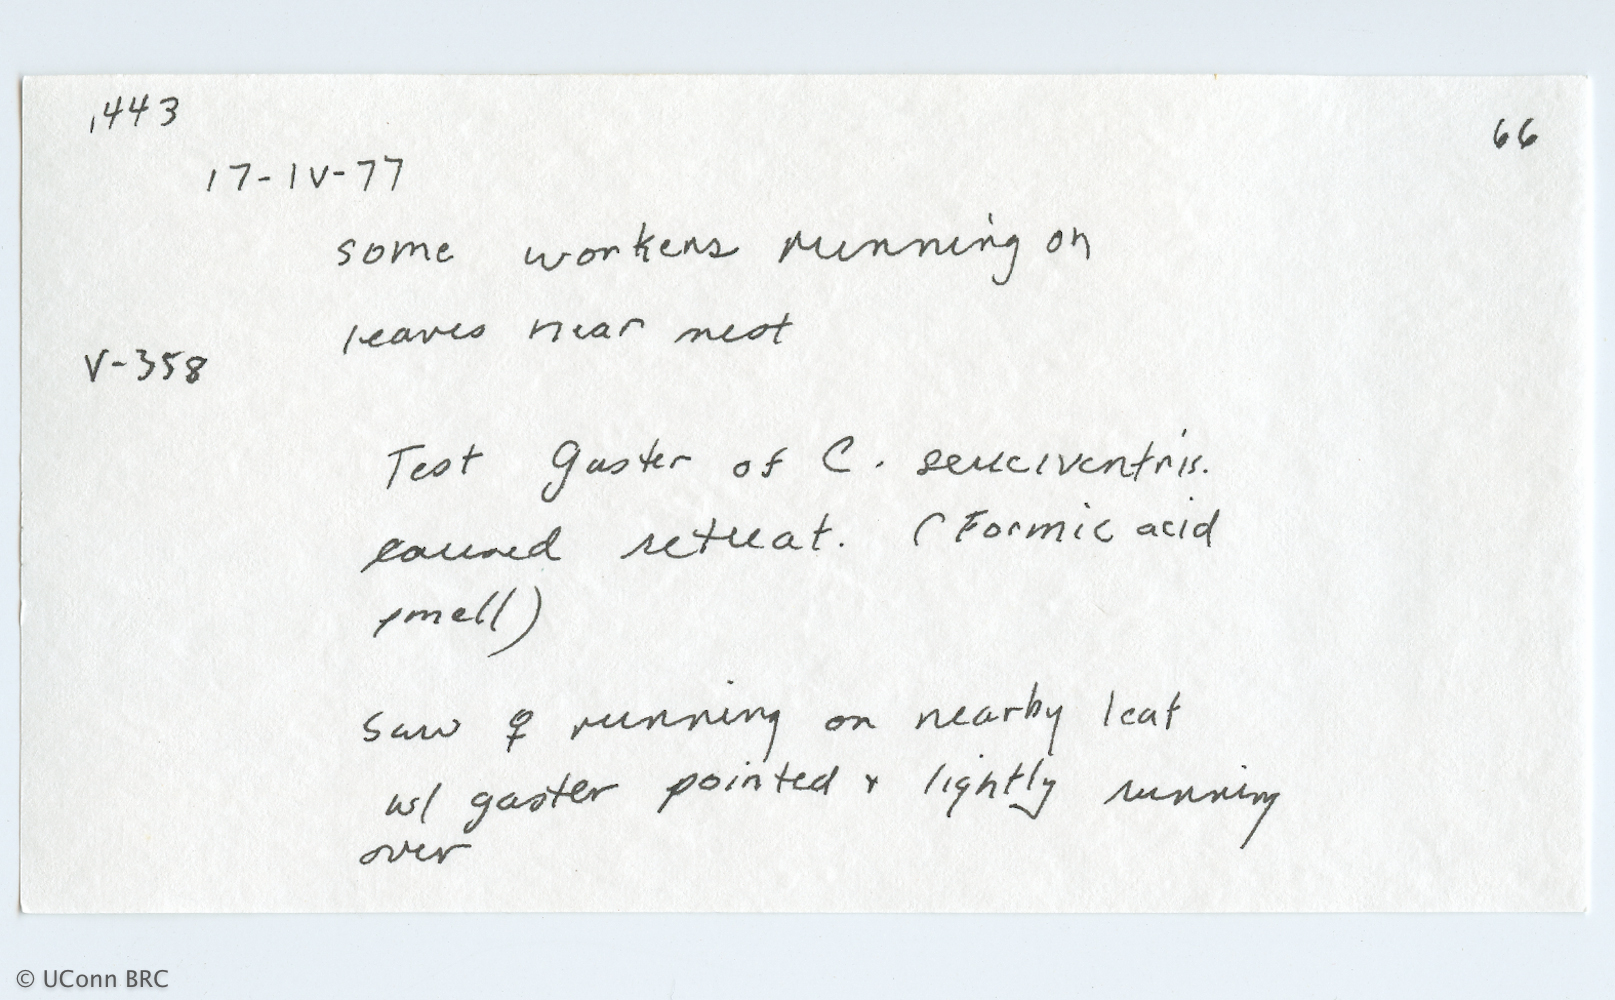 1443
66
17-IV-77
some workers running on
leaves near nest
V-358
Test Gaster of C. sericeiventris.
caused retreat. (Formic acid
smell)
Saw ☿ running on nearby leaf
w/ gaster pointed + lightly running
over
© UConn BRC